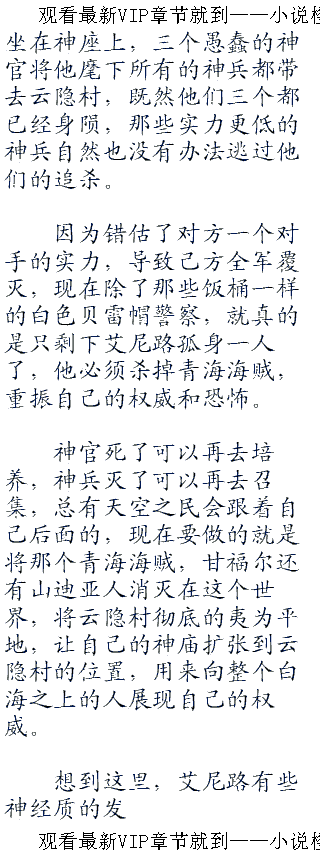 观看最新VIP章节就到——小说
坐在神座上，三个愚蠢的神
官将他麾下所有的神兵都带
去云隐村，既然他们三个都
已经身陨，那些实力更低的
神兵自然也没有办法逃过他
们的追杀。
因为错估了对方一个对
手的实力，导致己方全军覆
灭，现在除了那些饭桶一样
的白色贝雷帽警察，就真的
是只剩下艾尼路孤身一人
了，他必须杀掉青海海贼，
重振自己的权威和恐怖。
神官死了可以再去培
养，神兵灭了可以再去召
集，总有天空之民会跟着自
己后面的，现在要做的就是
将那个青海海贼，甘福尔还
有山迪亚人消灭在这个世
界，将云隐村彻底的夷为平
地，让自己的神庙扩张到云
隐村的位置，用来向整个白
海之上的人展现自己的权
威。
想到这里，艾尼路有些
神经质的发
观看最新VIP章节就到——小说